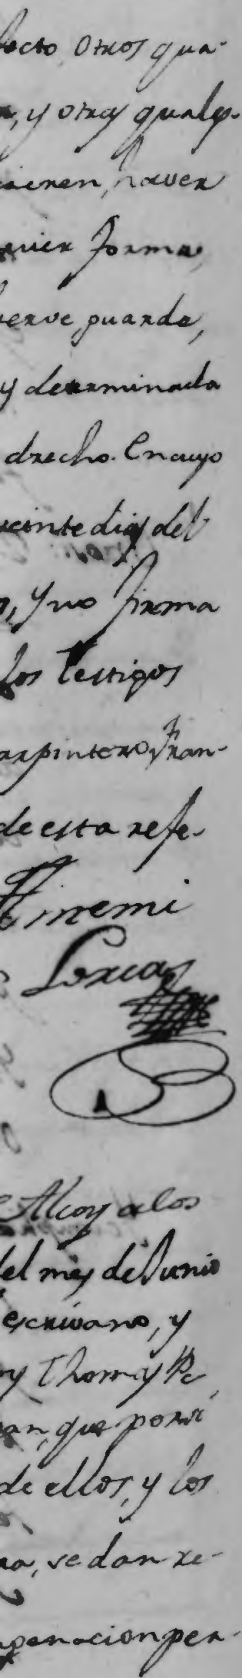 fecto, otros qua-
, y otras qualqs.
tienen, haver
quier forma,
serve, guarde,
y determinada
drecho. En cuyo
veinte dias del
, y no firma
los testigos
arpintero, Fran-
de esta refe-
Ante mi
Lorca
Alcoy a los
del mes de Junio
escrivano, y
y Thomas Pe
an, que por si
de ellos, y los
na, se dan re-
pen